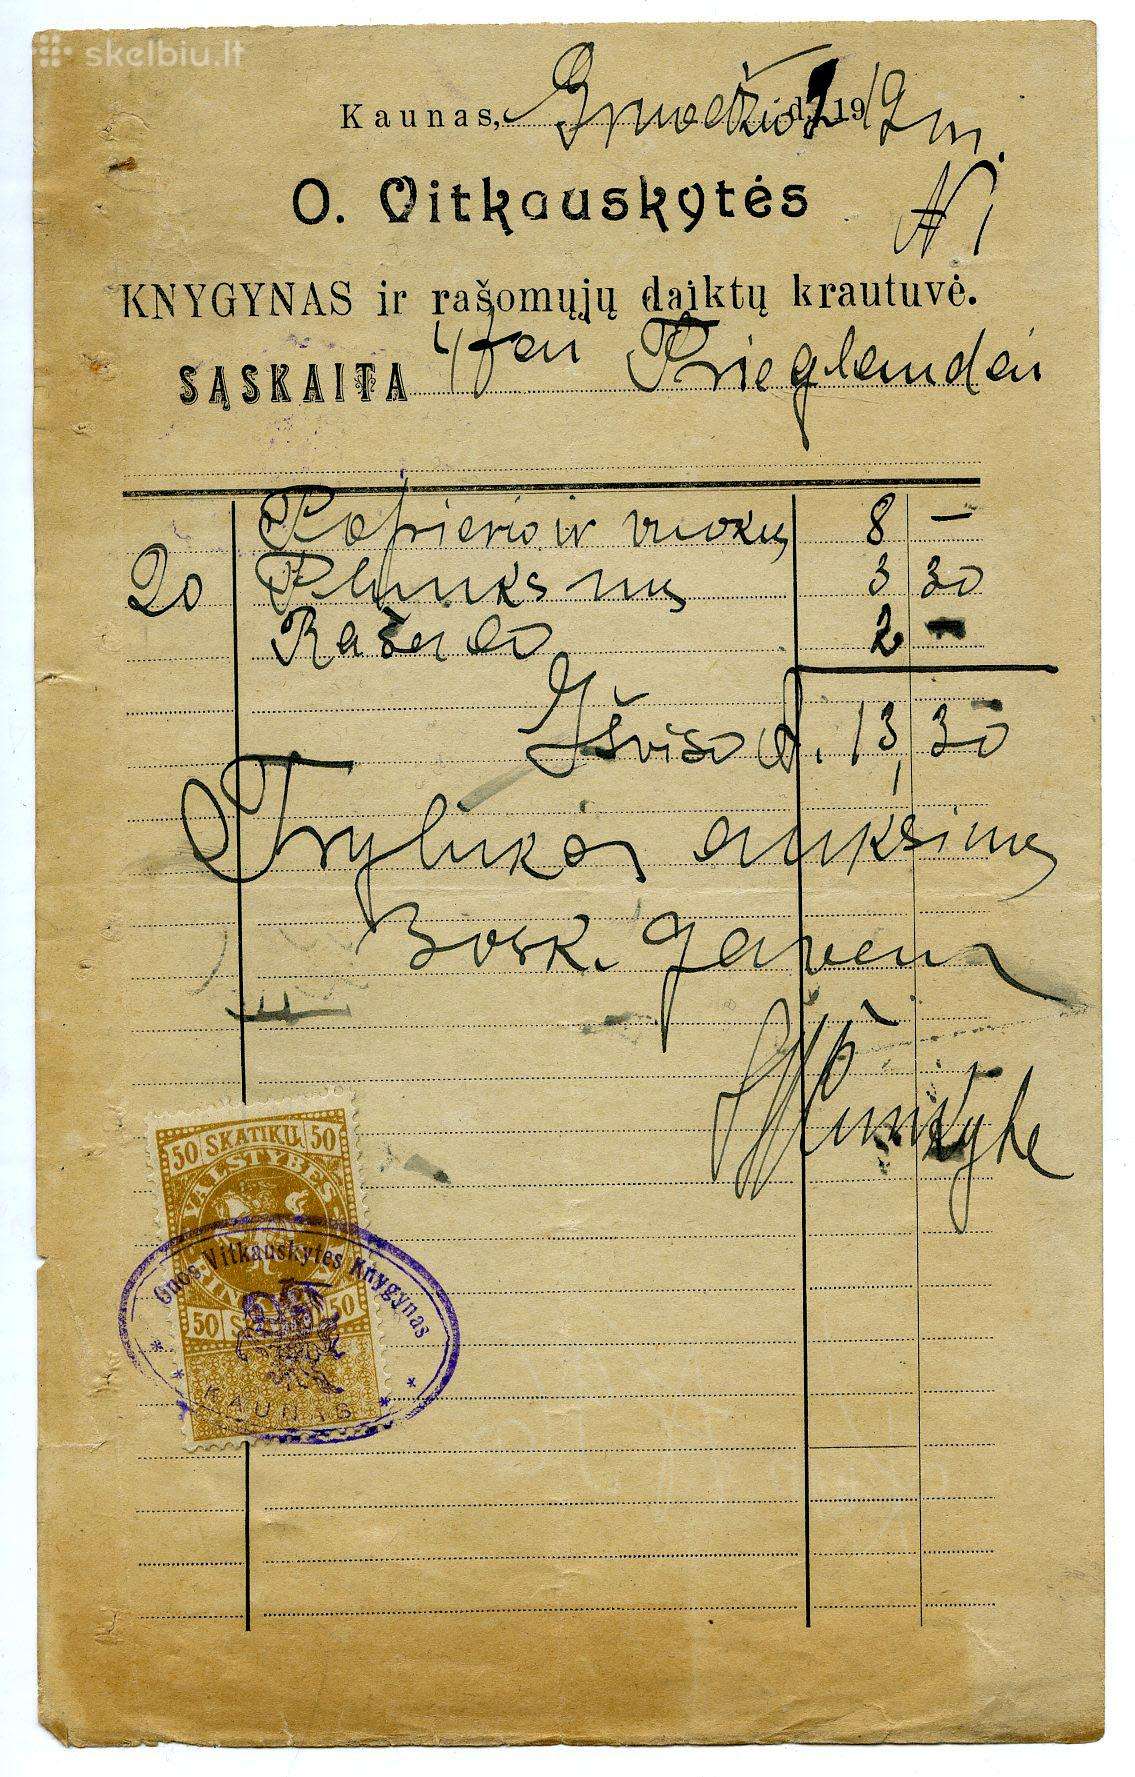 skelbiu.lt
Kaunas, Gruodžio d. 2 1919 m.
O. Vitkauskytės
N 1
KNYGYNAS ir rašomųjų daiktų krautuvė.
SĄSKAITA 4 jai Prieglaudai
Popierio ir vuokų 8 —
20 Plunksnų 3 30
Rašalo 2 —
Išviso A. 13, 30
Trylikos auksinų
30 sk. gavau
50 SKATIKŲ 50
VALSTYBĖS
50 50
Onos Vitkauskytės Knygynas
KAUNAS